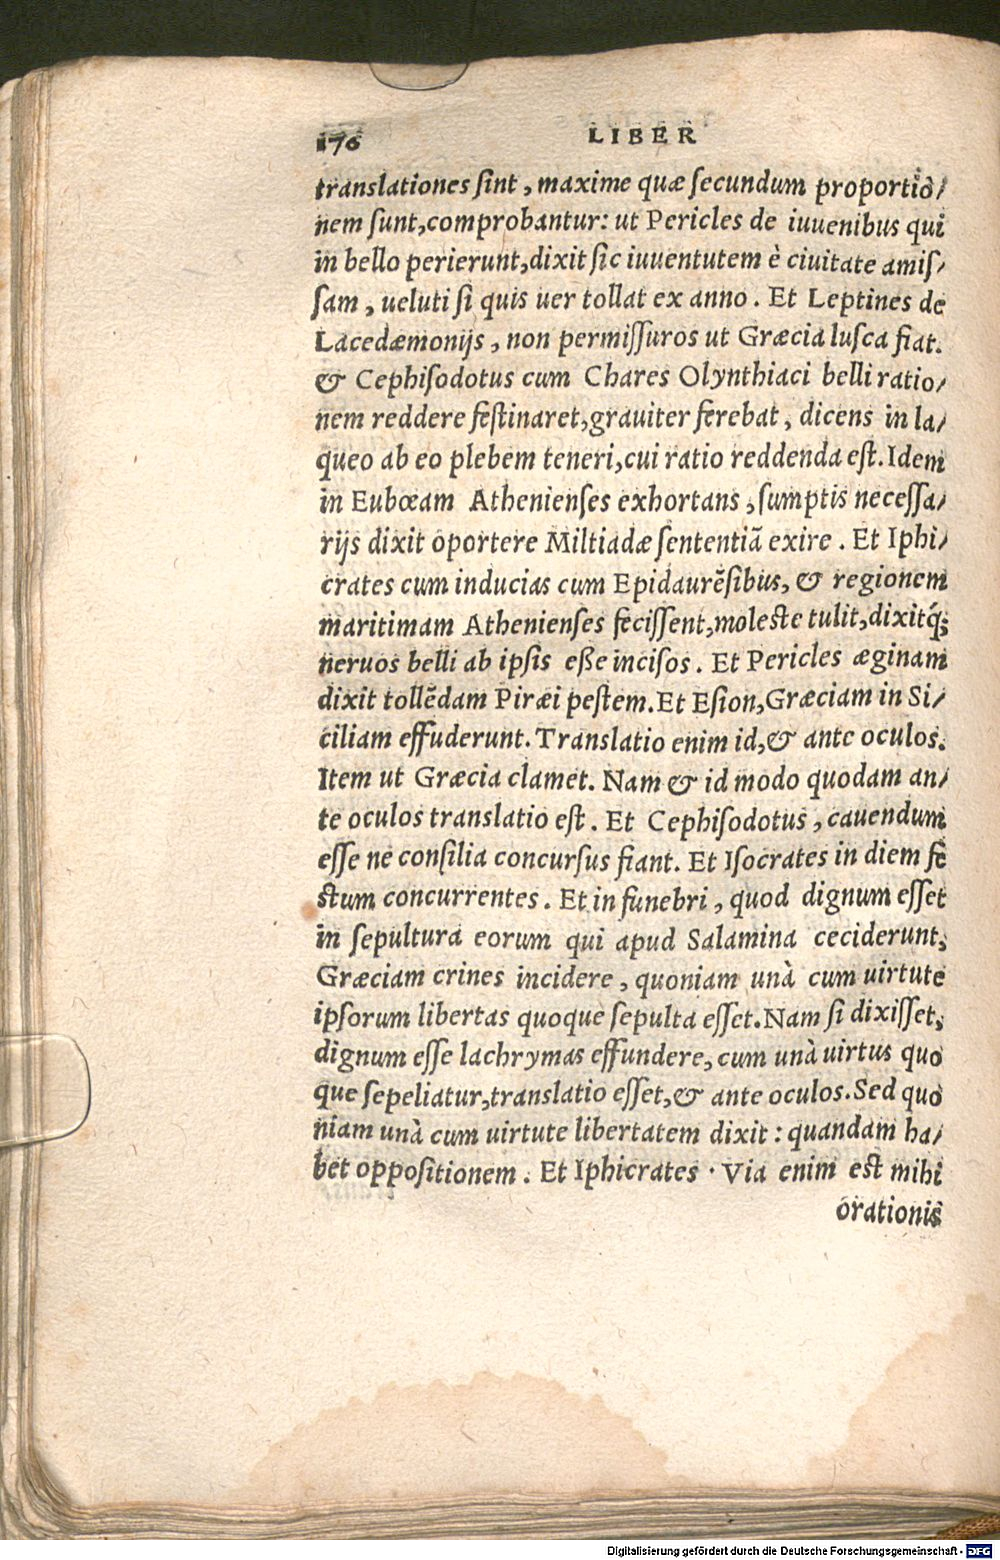 176 LIBER
translationes ſint, maxime quæ ſecundum proportio/
nem ſunt, comprobantur: ut Pericles de iuuenibus qui
in bello perierunt, dixit ſic iuuentutem è ciuitate amiſ/
ſam, ueluti ſi quis uer tollat ex anno. Et Leptines de
Lacedæmonijs, non permiſſuros ut Græcia luſca fiat.
& Cephiſodotus cum Chares Olynthiaci belli ratio/
nem reddere feſtinaret, grauiter ferebat, dicens in la/
queo ab eo plebem teneri, cui ratio reddenda eſt. Idem
in Eubœam Athenienſes exhortans, ſumptis neceſſa/
rijs dixit oportere Miltiadæ ſententiã exire. Et Iphi/
crates cum inducias cum Epidaurẽſibus, & regionem
maritimam Athenienſes feciſſent, moleſte tulit, dixitq́;
neruos belli ab ipſis eße inciſos. Et Pericles æginam
dixit tollẽdam Piræi peſtem. Et Eſion, Græciam in Si/
ciliam effuderunt. Translatio enim id, & ante oculos.
Item ut Græcia clamet. Nam & id modo quodam an/
te oculos translatio eſt. Et Cephiſodotus, cauendum
eſſe ne conſilia concurſus fiant. Et Iſocrates in diem fe
ſtum concurrentes. Et in funebri, quod dignum eſſet
in ſepultura eorum qui apud Salamina ceciderunt,
Græciam crines incidere, quoniam unà cum uirtute
ipſorum libertas quoque ſepulta eſſet. Nam ſi dixiſſet,
dignum eſſe lachrymas effundere, cum unà uirtus quo
que ſepeliatur, translatio eſſet, & ante oculos. Sed quo
niam unà cum uirtute libertatem dixit: quandam ha/
bet oppoſitionem. Et Iphicrates · Via enim eſt mihi
orationis
Digitalisierung gefördert durch die Deutsche Forschungsgemeinschaft - DFG